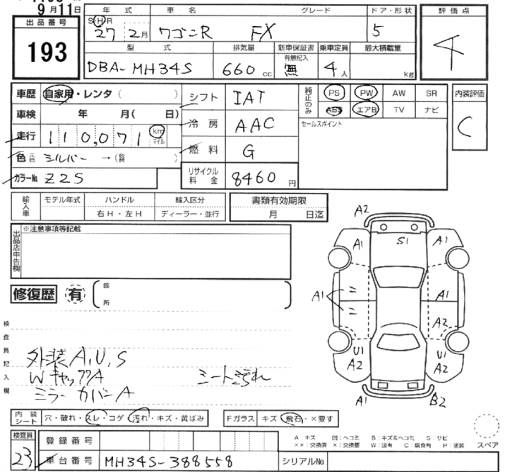 9月11日
出品番号 193
年式 車名 グレード ドア・形状 評価点
S H R 27年 2月 ワゴンR FX 5 4
型式 排気量 新車保証書 有無記入 乗車定員 最大積載量
DBA-MH34S 660cc 無 4人 kg
車歴 自家用・レンタ( )
車検 年 月( 日)
走行 110,071 km マイル
色 元色 シルバー →( )
カラーNo. Z2S
シフト IAT
冷房 AAC
燃料 G
リサイクル料金 8460円
純正のみ PS PW AW SR
ABS エアB TV ナビ
セールスポイント
内装評価 C
輸入車 モデル年式 ハンドル 右H・左H 輸入区分 ディーラー・並行
書類有効期限 月 日迄
出品店申告欄 ※注意事項等記載
修復歴 有 箇所
検査員記入欄
外装A,U,S
WキャップA シートよごれ
ミラーカバーA
A2
A1 S1 A1
A1 A1
A2 A2
U1 U1
A2 A2
A1 B2
内装シート 穴・破れ・スレ・コゲ 汚れ・キズ・黄ばみ
Fガラス キズ 飛石・×要す
A キズ U ヘコミ B キズ&ヘコミ S サビ
XX 交換済 X 要交換 W 波有 C 腐食有 P 塗装
スペア
検査員 23
登録番号
車台番号 MH34S-388558 シリアルNo.